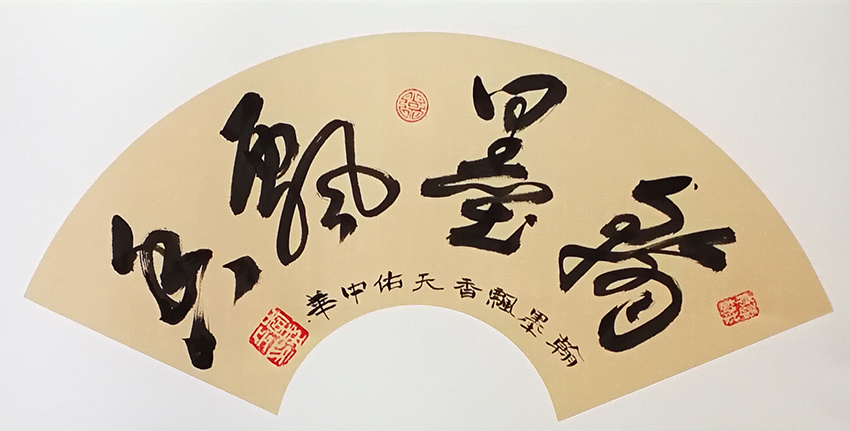 翰墨飘香
翰墨飄香天佑中華